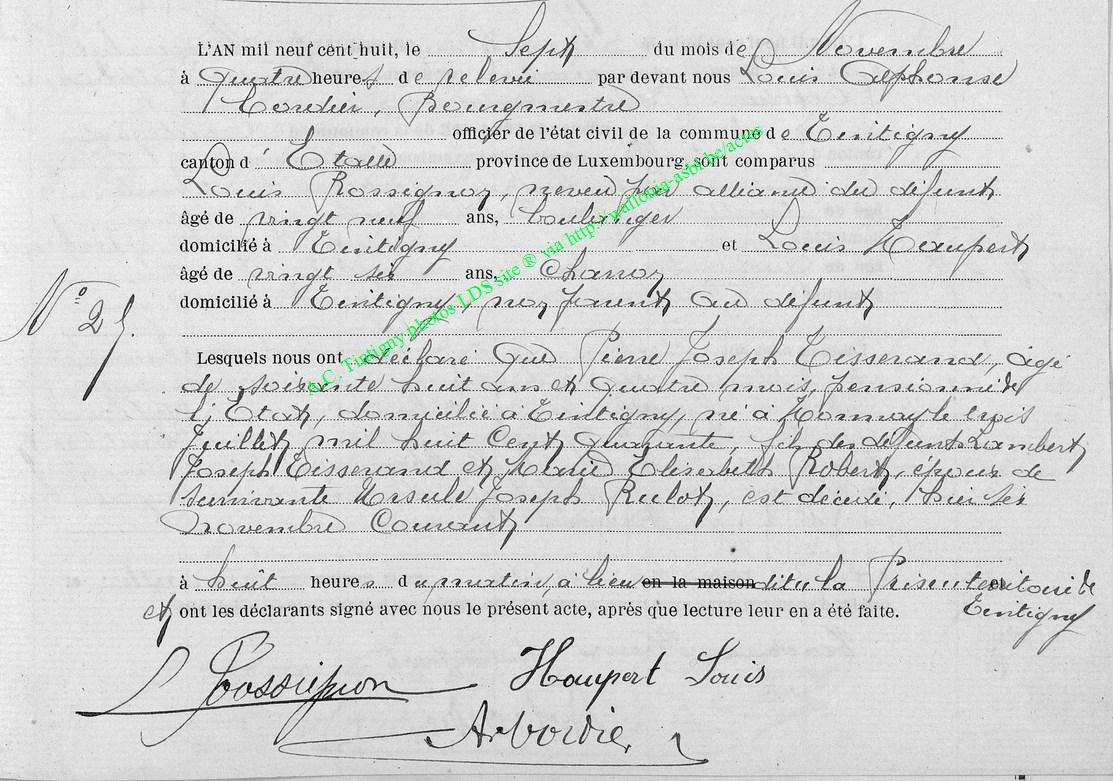 L'AN mil neuf cent huit, le Sept du mois de Novembre
à quatre heures de relevée par devant nous Louis Alphonse
Cordier, Bourgmestre
officier de l'état civil de la commune de Tintigny
canton d'Etalle province de Luxembourg, sont comparus
Louis Rossignon, neveu par alliance du défunt
âgé de vingt neuf ans, boulanger
domicilié à Tintigny et Louis Haupert
âgé de vingt six ans,
domicilié à Tintigny, non parent au défunt
N° 25.
Lesquels nous ont déclaré que Pierre Joseph Tisserand, âgé
de soixante huit ans et quatre mois, pensionné de
l'Etat, domicilié à Tintigny, né à le trois
Juillet mil huit cent quarante, fils des défunts Lambert
Joseph Tisserand et Marie Elisabeth Robert, époux de
survivante Ursule Joseph Rulot, est décédé, hier six
novembre courant
à huit heures du matin, a lieu en la maison dite la Prise territoire de
Tintigny
et ont les déclarants signé avec nous le présent acte, après que lecture leur en a été faite.
L Rossignon Haupert Louis
A. Cordier
A.C. Tintigny photos LDS site ® via http://wallonia-asbl.be/actes